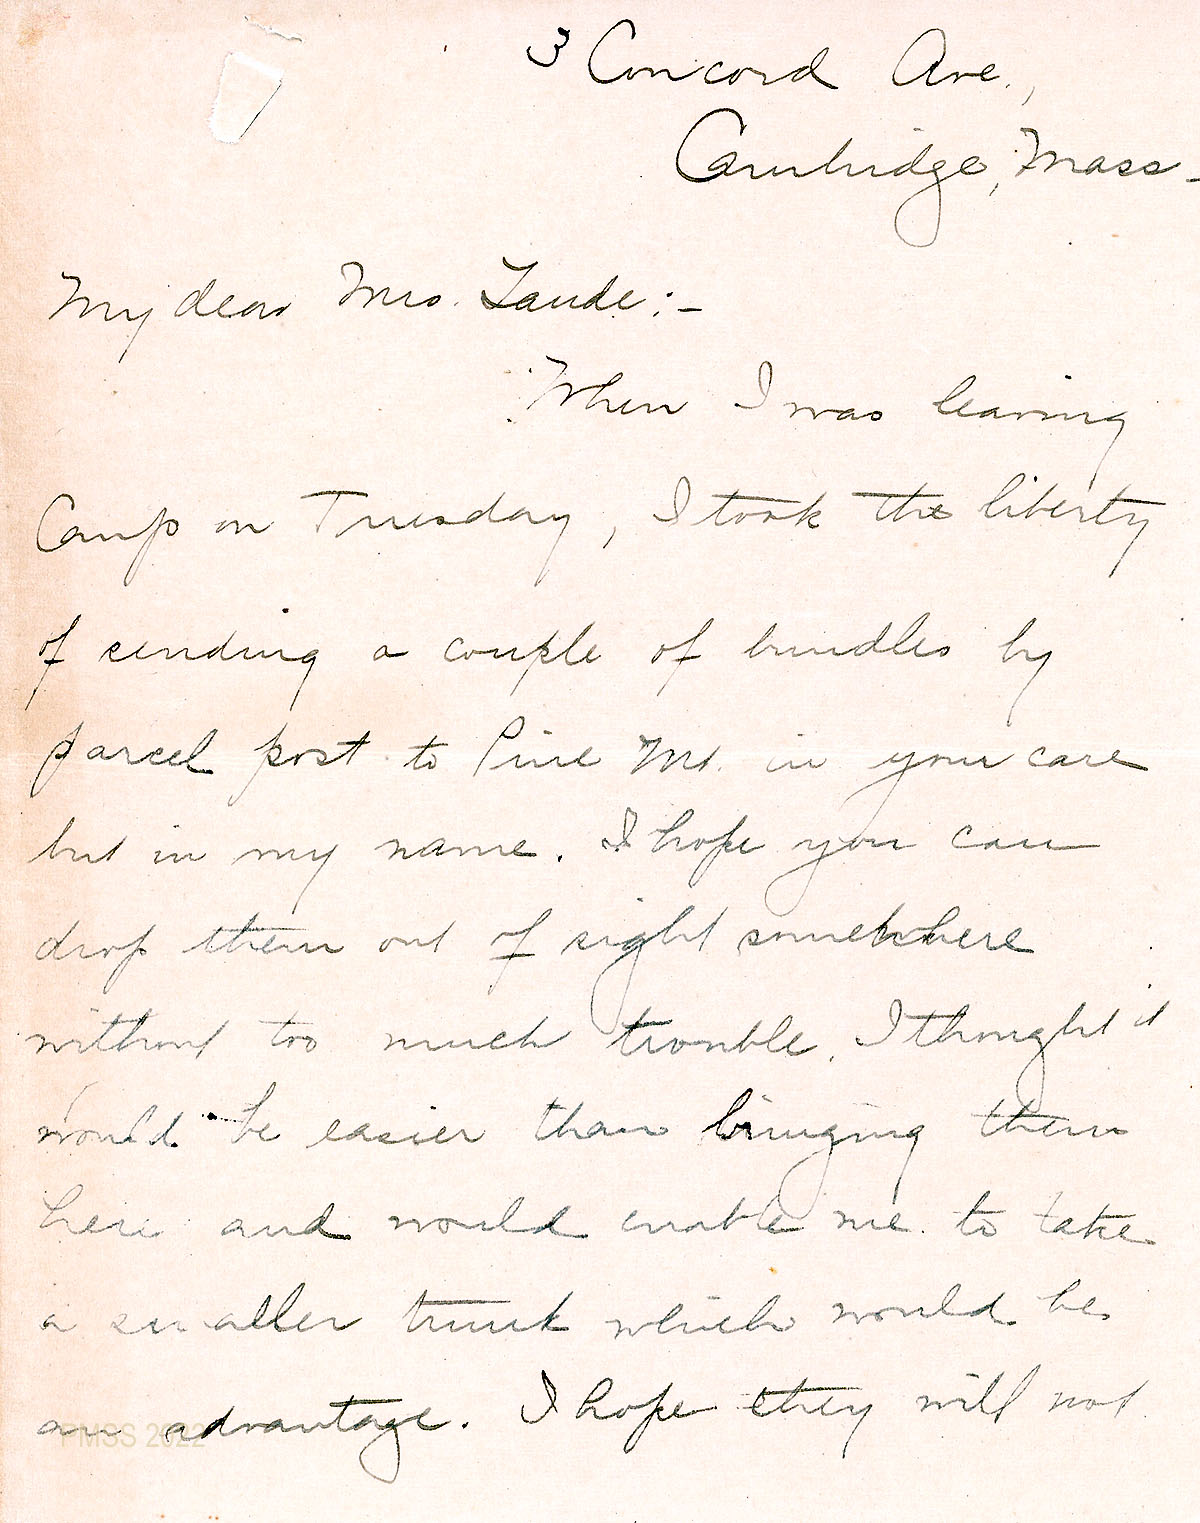 3 Concord Ave.,
Cambridge, Mass -
My dear Mrs. Zande:-
When I was leaving
Camp on Tuesday, I took the liberty
of sending a couple of bundles by
parcel post to Pine Mt. in your care
but in my name. I hope you can
drop them out of sight somewhere
without too much trouble. I thought it
would be easier than bringing them
here and would enable me to take
a smaller trunk which would be
an advantage. I hope they will not
PMSS 2022